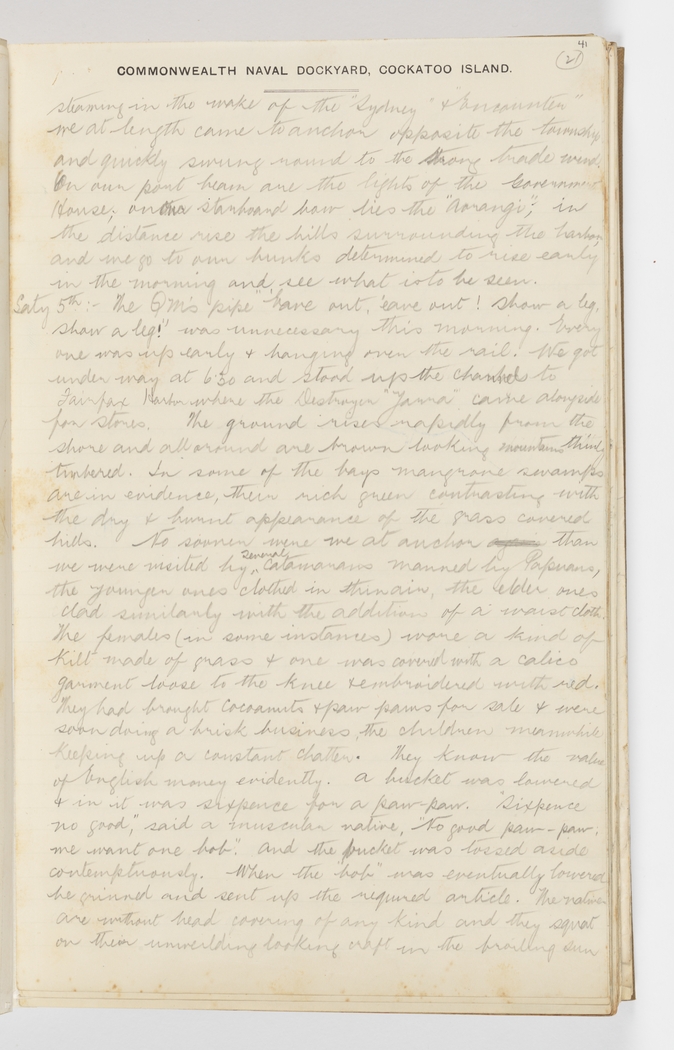 41
(21)
COMMONWEALTH NAVAL DOCKYARD, COCKATOO ISLAND.
steaming in the wake of the "Sydney" & "Encounter"
we at length came to anchor opposite the township
and quickly swung round to the strong trade wind.
On our port beam are the lights of the Government
House; on the starboard bow lies the "Aorangi"; in
the distance rise the hills surrounding the harbor,
and we go to our bunks determined to rise early
in the morning and see what is to be seen.
Saty 5th:- The QM's pipe "'Eave out, 'eave out! Show a leg,
show a leg!" was unnecessary this morning. Every
one was up early & hanging over the rail. We got
under way at 6.30 and stood up the channels to
Fairfax Harbor where the Destroyer "Yarra" came alongside
for stores. The ground rises rapidly from the
shore and all around are brown looking mountains thinly
timbered. In some of the bays mangrove swamps
are in evidence, their rich green contrasting with
the dry & burnt appearance of the grass covered
hills. No sooner were we at anchor than
we were visited by several catamarans manned by Papuans,
the younger ones clothed in thin air, the elder ones
clad similarly with the addition of a waist cloth.
The females (in some instances) wore a kind of
"kilt" made of grass & one was covered with a calico
garment loose to the knee & embroidered with red.
They had brought cocoanuts & paw paws for sale & were
soon doing a brisk business, the children meanwhile
keeping up a constant chatter. They know the value
of English money evidently. A bucket was lowered
& in it was sixpence for a paw-paw. "Sixpence
no good," said a muscular native, "No good paw-paw,
me want one bob". And the bucket was tossed aside
contemptuously. When the "bob" was eventually lowered
he grinned and sent up the required article. The natives
are without head covering of any kind and they squat
on their unweilding looking craft in the broiling sun